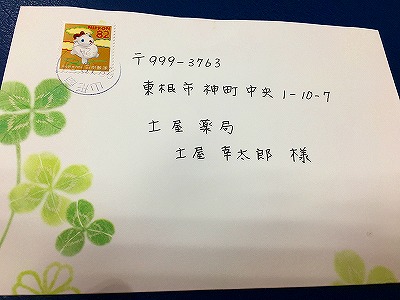 NIPPON
82
〒999-3763
東根市神町中央1-10-7
土屋薬局
土屋幸太郎 様